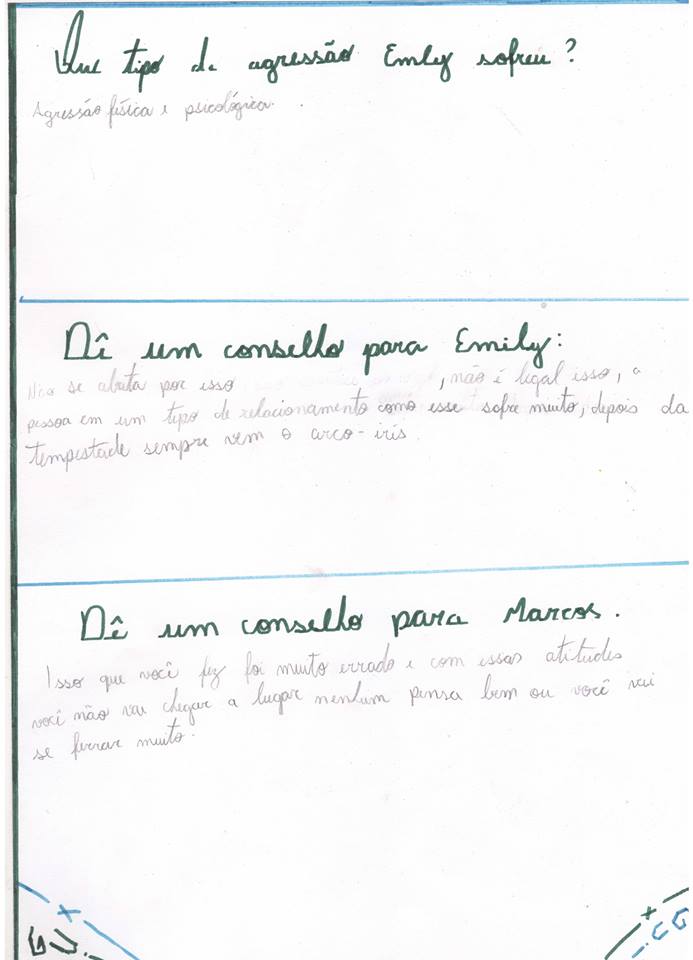 Que tipo de agressão Emly sofreu?
Agressão física e psicológica.
Dê um conselho para Emily:
Não se abata por isso, não é legal isso, a
pessoa em um tipo de relacionamento como esse sofre muito, depois da
tempestade sempre vem o arco-iris.
Dê um conselho para Marcos.
Isso que você fez foi muito errado e com essas atitudes
você não vai chegar a lugar nenhum pensa bem ou você vai
se ferrar muito.